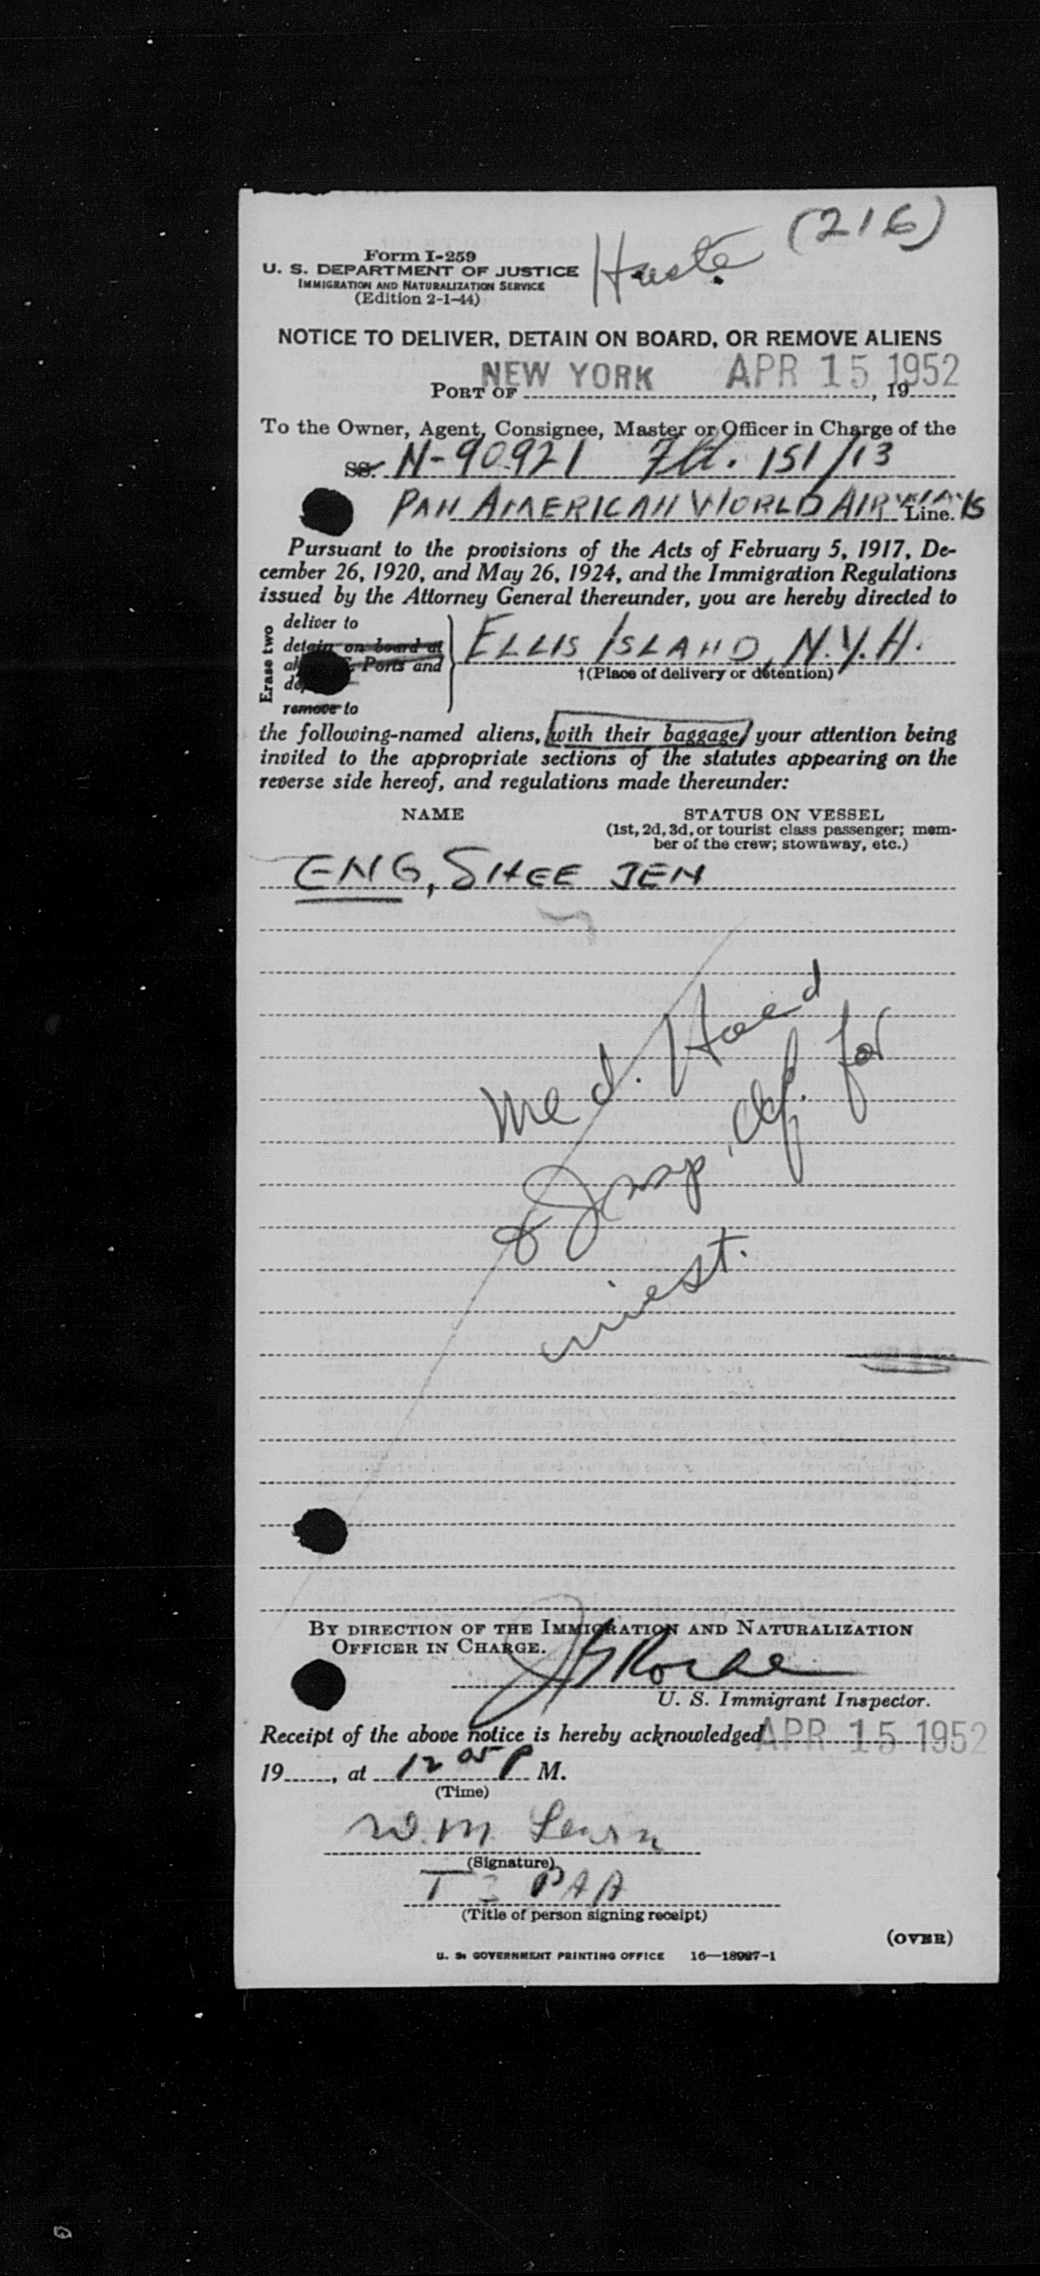 (216)
Form I-259
U. S. DEPARTMENT OF JUSTICE
IMMIGRATION AND NATURALIZATION SERVICE
(Edition 2-1-44)
NOTICE TO DELIVER, DETAIN ON BOARD, OR REMOVE ALIENS
PORT OF NEW YORK APR 15 1952, 19
To the Owner, Agent, Consignee, Master or Officer in Charge of the
SS. N-90921 Flt. 151/13
PAN AMERICAN WORLD AIRWAYS Line.
Pursuant to the provisions of the Acts of February 5, 1917, De-
cember 26, 1920, and May 26, 1924, and the Immigration Regulations
issued by the Attorney General thereunder, you are hereby directed to
Erase two
deliver to
detain on board at
Ports and
remove to
ELLIS ISLAND, N.Y.H.
†(Place of delivery or detention)
the following-named aliens, with their baggage, your attention being
invited to the appropriate sections of the statutes appearing on the
reverse side hereof, and regulations made thereunder:
NAME STATUS ON VESSEL
(1st, 2d, 3d, or tourist class passenger; mem-
ber of the crew; stowaway, etc.)
ENG, SHEE JEN
Med. Hold
& Insp. def. for
invest.
BY DIRECTION OF THE IMMIGRATION AND NATURALIZATION
OFFICER IN CHARGE.
U. S. Immigrant Inspector.
Receipt of the above notice is hereby acknowledged APR 15 1952
19, at 12 05 P M.
(Time)
W. M.
(Signature)
PAA
(Title of person signing receipt)
(OVER)
U. S. GOVERNMENT PRINTING OFFICE 16—18987-1